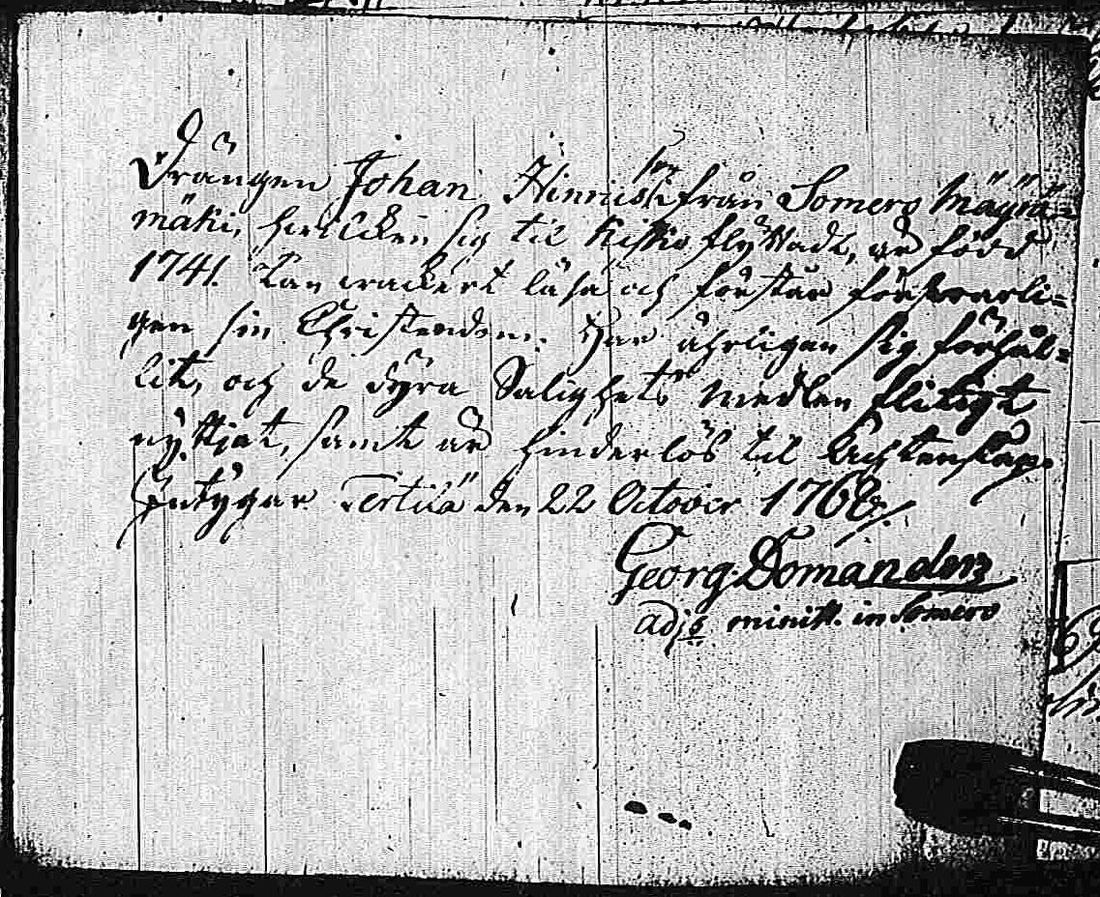 Drängen Johan Hinrichss: från Somero Mäyrä=
mäki, hwilcken sig til Kisko flyttadt, är född
1741. Kan wackert läsa och förstår förswarli=
gen sin Christendom. Har ährligen sig förhål=
lit, och de dyra Salighets medlen flitigt
nyttjat, samt är hinderlös til Ächtenskap.
Intygar Tertilä den 22 October 1768./.
Georg Domander
adjs minist. in Somero